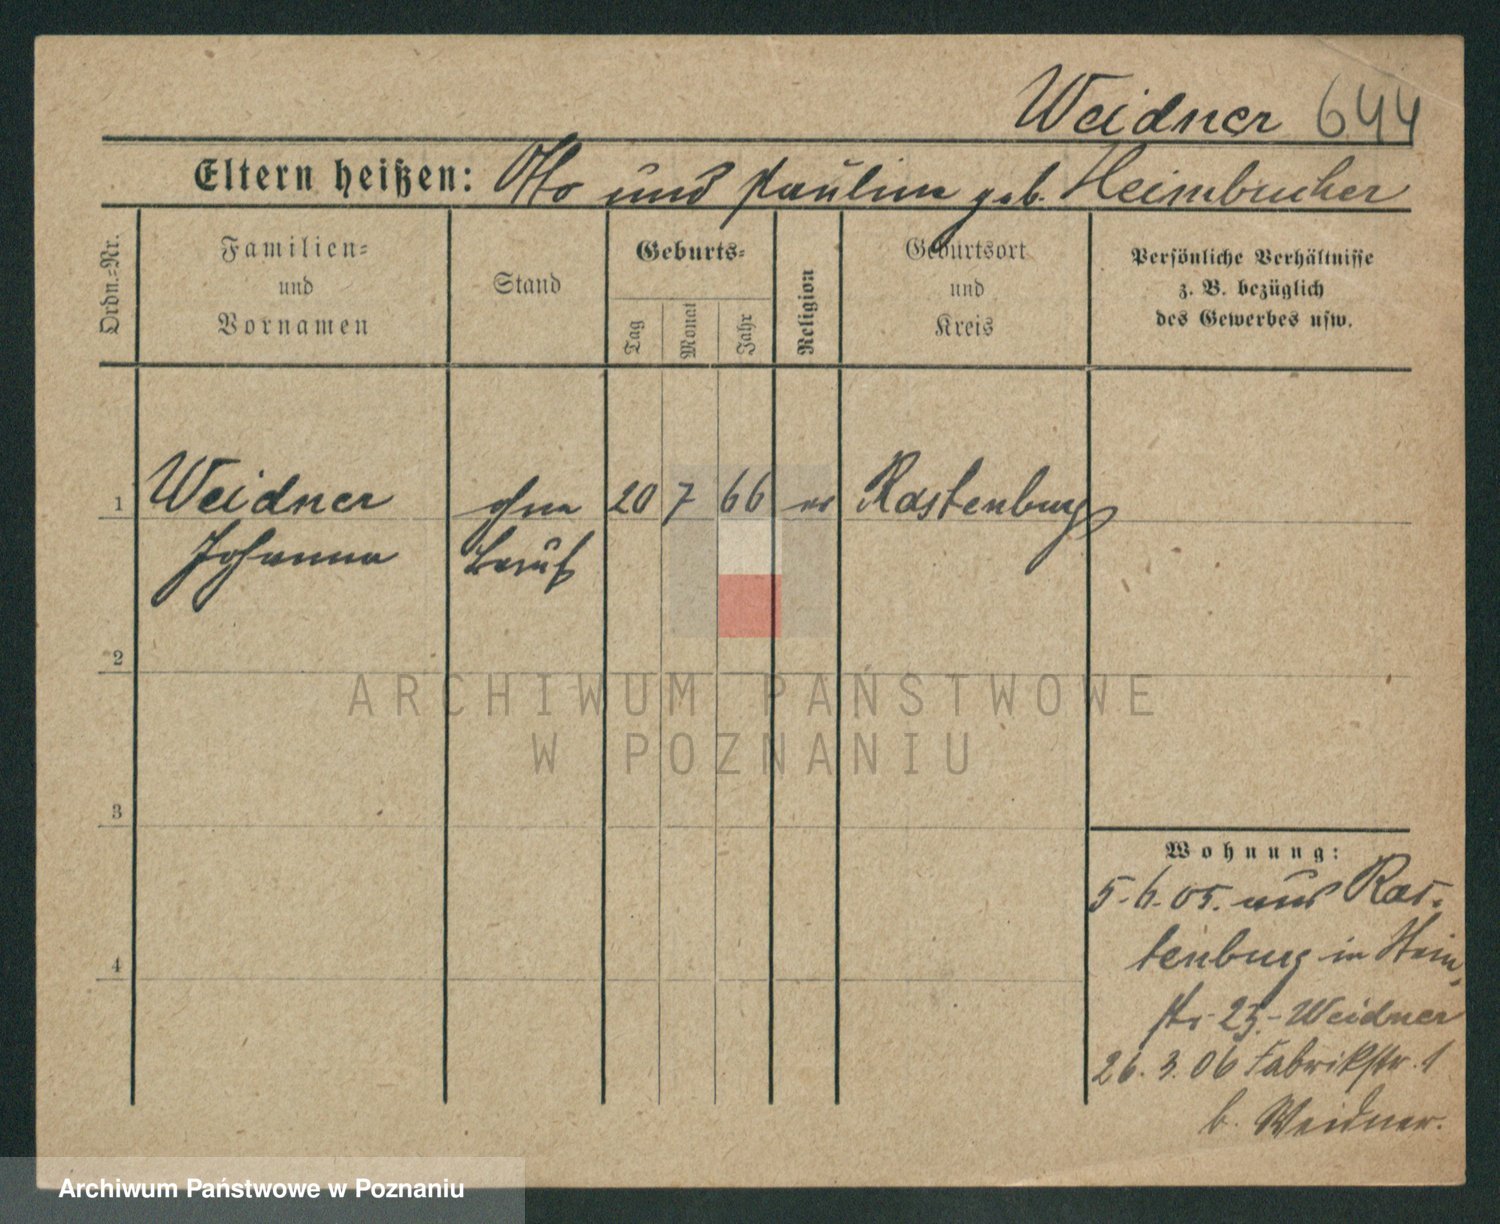 Weidner 644
Eltern heißen: Otto und Pauline geb. Heimbucher
Ordn.=Nr.
Familien=
und
Vornamen
Stand
Geburts=
Tag
Monat
Jahr
Religion
Geburtsort
und
Kreis
Persönliche Verhältnisse
z. B. bezüglich
des Gewerbes usw.
1 Weidner ohne 20 7 66 ev Rastenburg
Johanna Beruf
2
3
4
Wohnung:
5.6.05. aus Ras-
tenburg in
str. 25.- Weidner
26.3.06 Fabrikstr. 1
b. Weidner.
ARCHIWUM PAŃSTWOWE
W POZNANIU
Archiwum Państwowe w Poznaniu